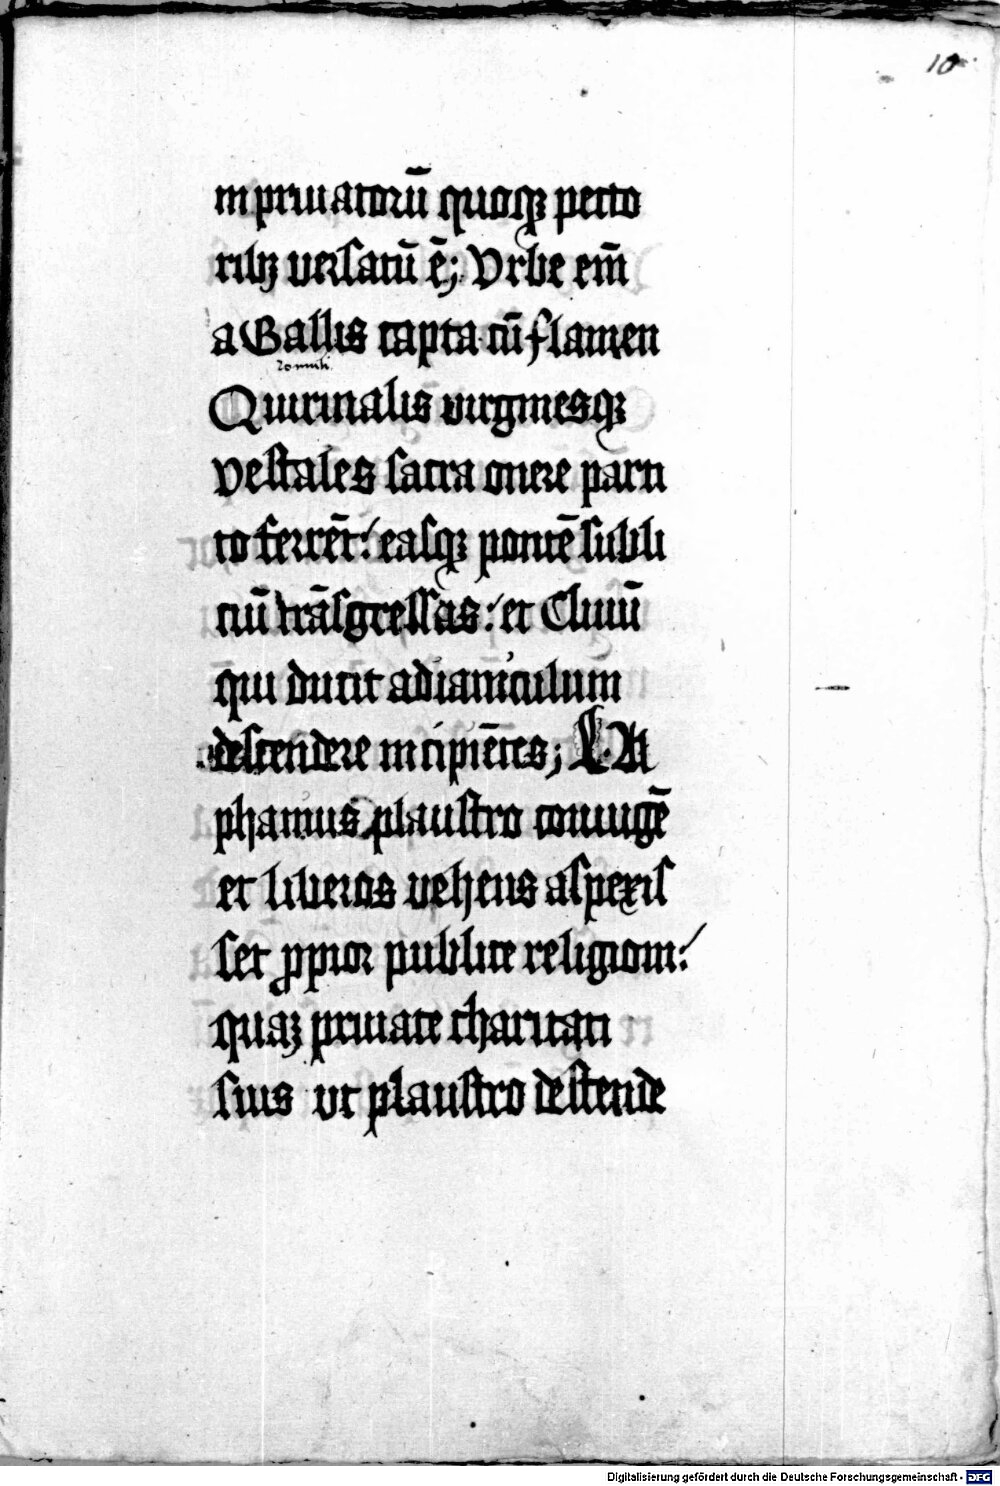 10
in priuatorū quoqꝫ pecto
ribꝫ versatū ē; Vrbe em̄
a Gallis capta cū flamen
romuli
Quirinalis virginesqꝫ
vestales sacra onere parti
to ferrēt: easqꝫ pontē subli
ciū trāsgressas: et Cliuū
qui ducit ad ianiculum
descendere incipiētes; L. Al
phanius plaustro coniugē
et liberos vehens aspexis
set ꝓpior publice religioni:
quaꝫ priuate charitati
suis vt plaustro descende
Digitalisierung gefördert durch die Deutsche Forschungsgemeinschaft - DFG